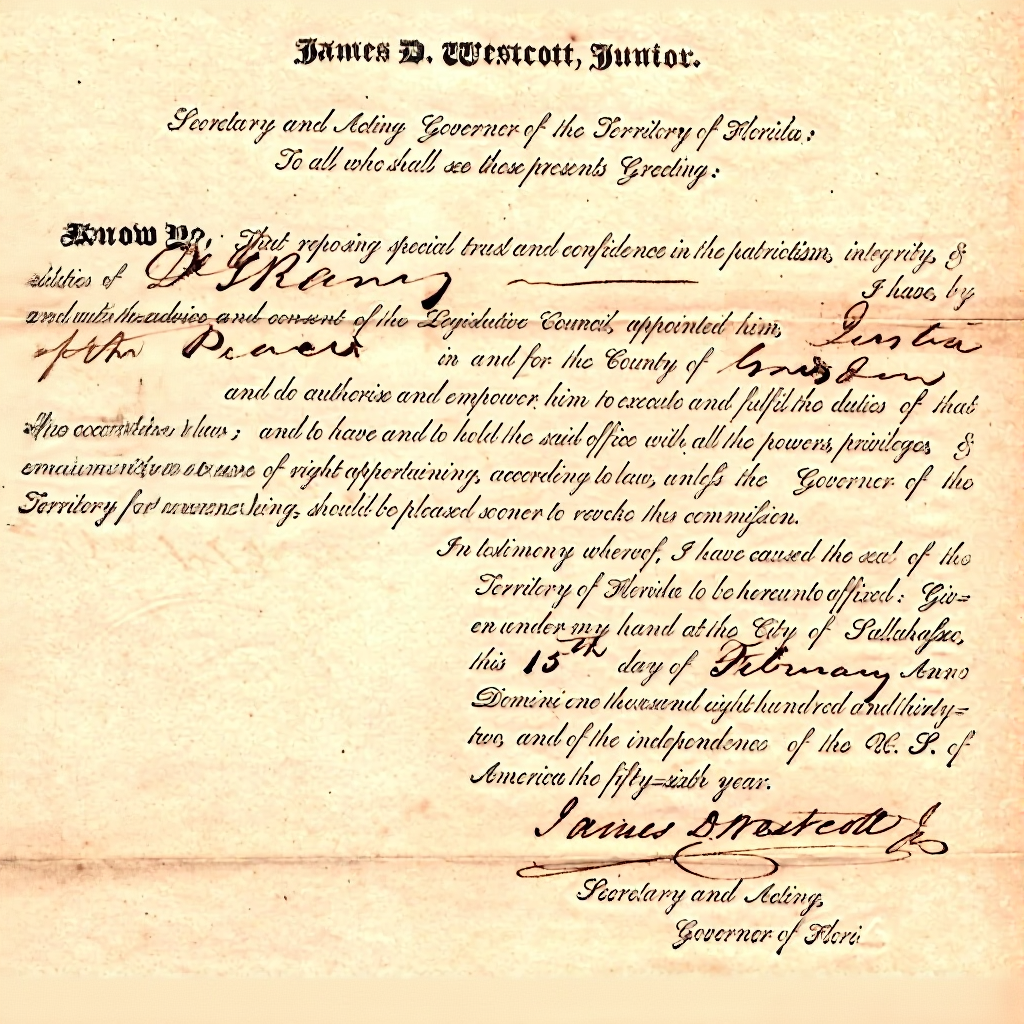 James D. Westcott, Junior.
Secretary and Acting Governor of the Territory of Florida:
To all who shall see these presents Greeting:
Know Ye, That reposing special trust and confidence in the patriotism, integrity, &
abilities of I have, by
and with the advice and consent of the Legislative Council, appointed him, Justice
of the Peace in and for the County of
and do authorise and empower him to execute and fulfil the duties of that
; and to have and to hold the said office with all the powers, privileges, &
of right appertaining, according to law, unless the Governor of the
Territory for the time being, should be pleased sooner to revoke this commission.
In testimony whereof, I have caused the seal of the
Territory of Florida to be hereunto affixed: Giv=
en under my hand at the City of Tallahassee,
this 15th day of February Anno
Domini one thousand eight hundred and thirty=
two, and of the independence of the U. S. of
America the fifty=sixth year.
James D. Westcott Jr
Secretary and Acting,
Governor of Flori